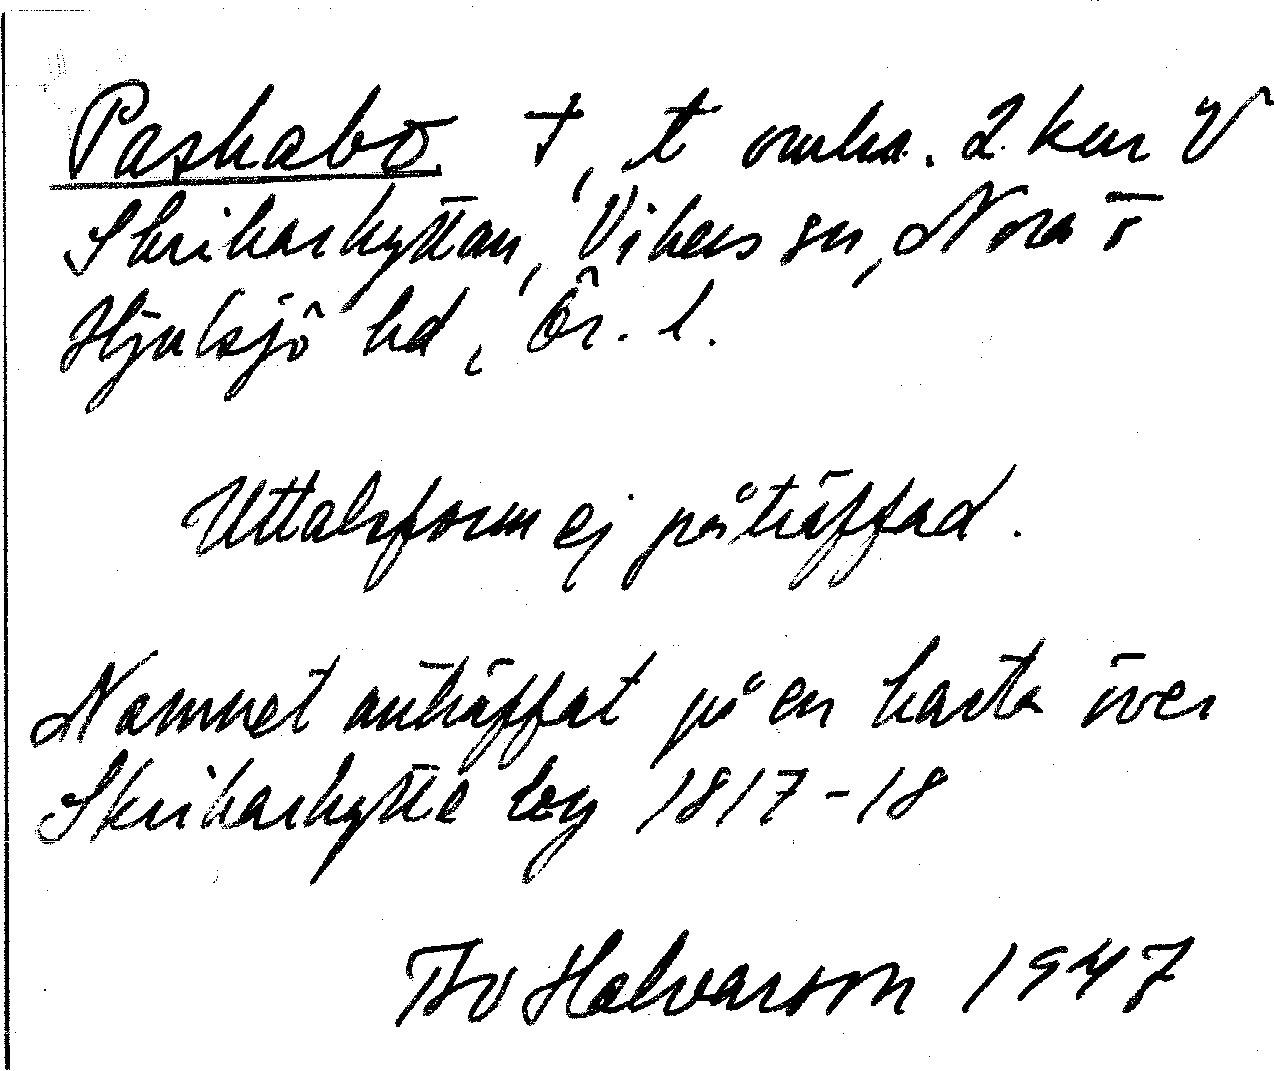 Paskabo †, t omkr. 2 km V
Skrikarhyttan, Vikers sn, Nora o
Hjulsjö hd, Ör. l.
Uttalsform ej påträffad.
Namnet anträffat på en karta över
Skrikarhytte beg 1817-18
Bo Halvarson 1947